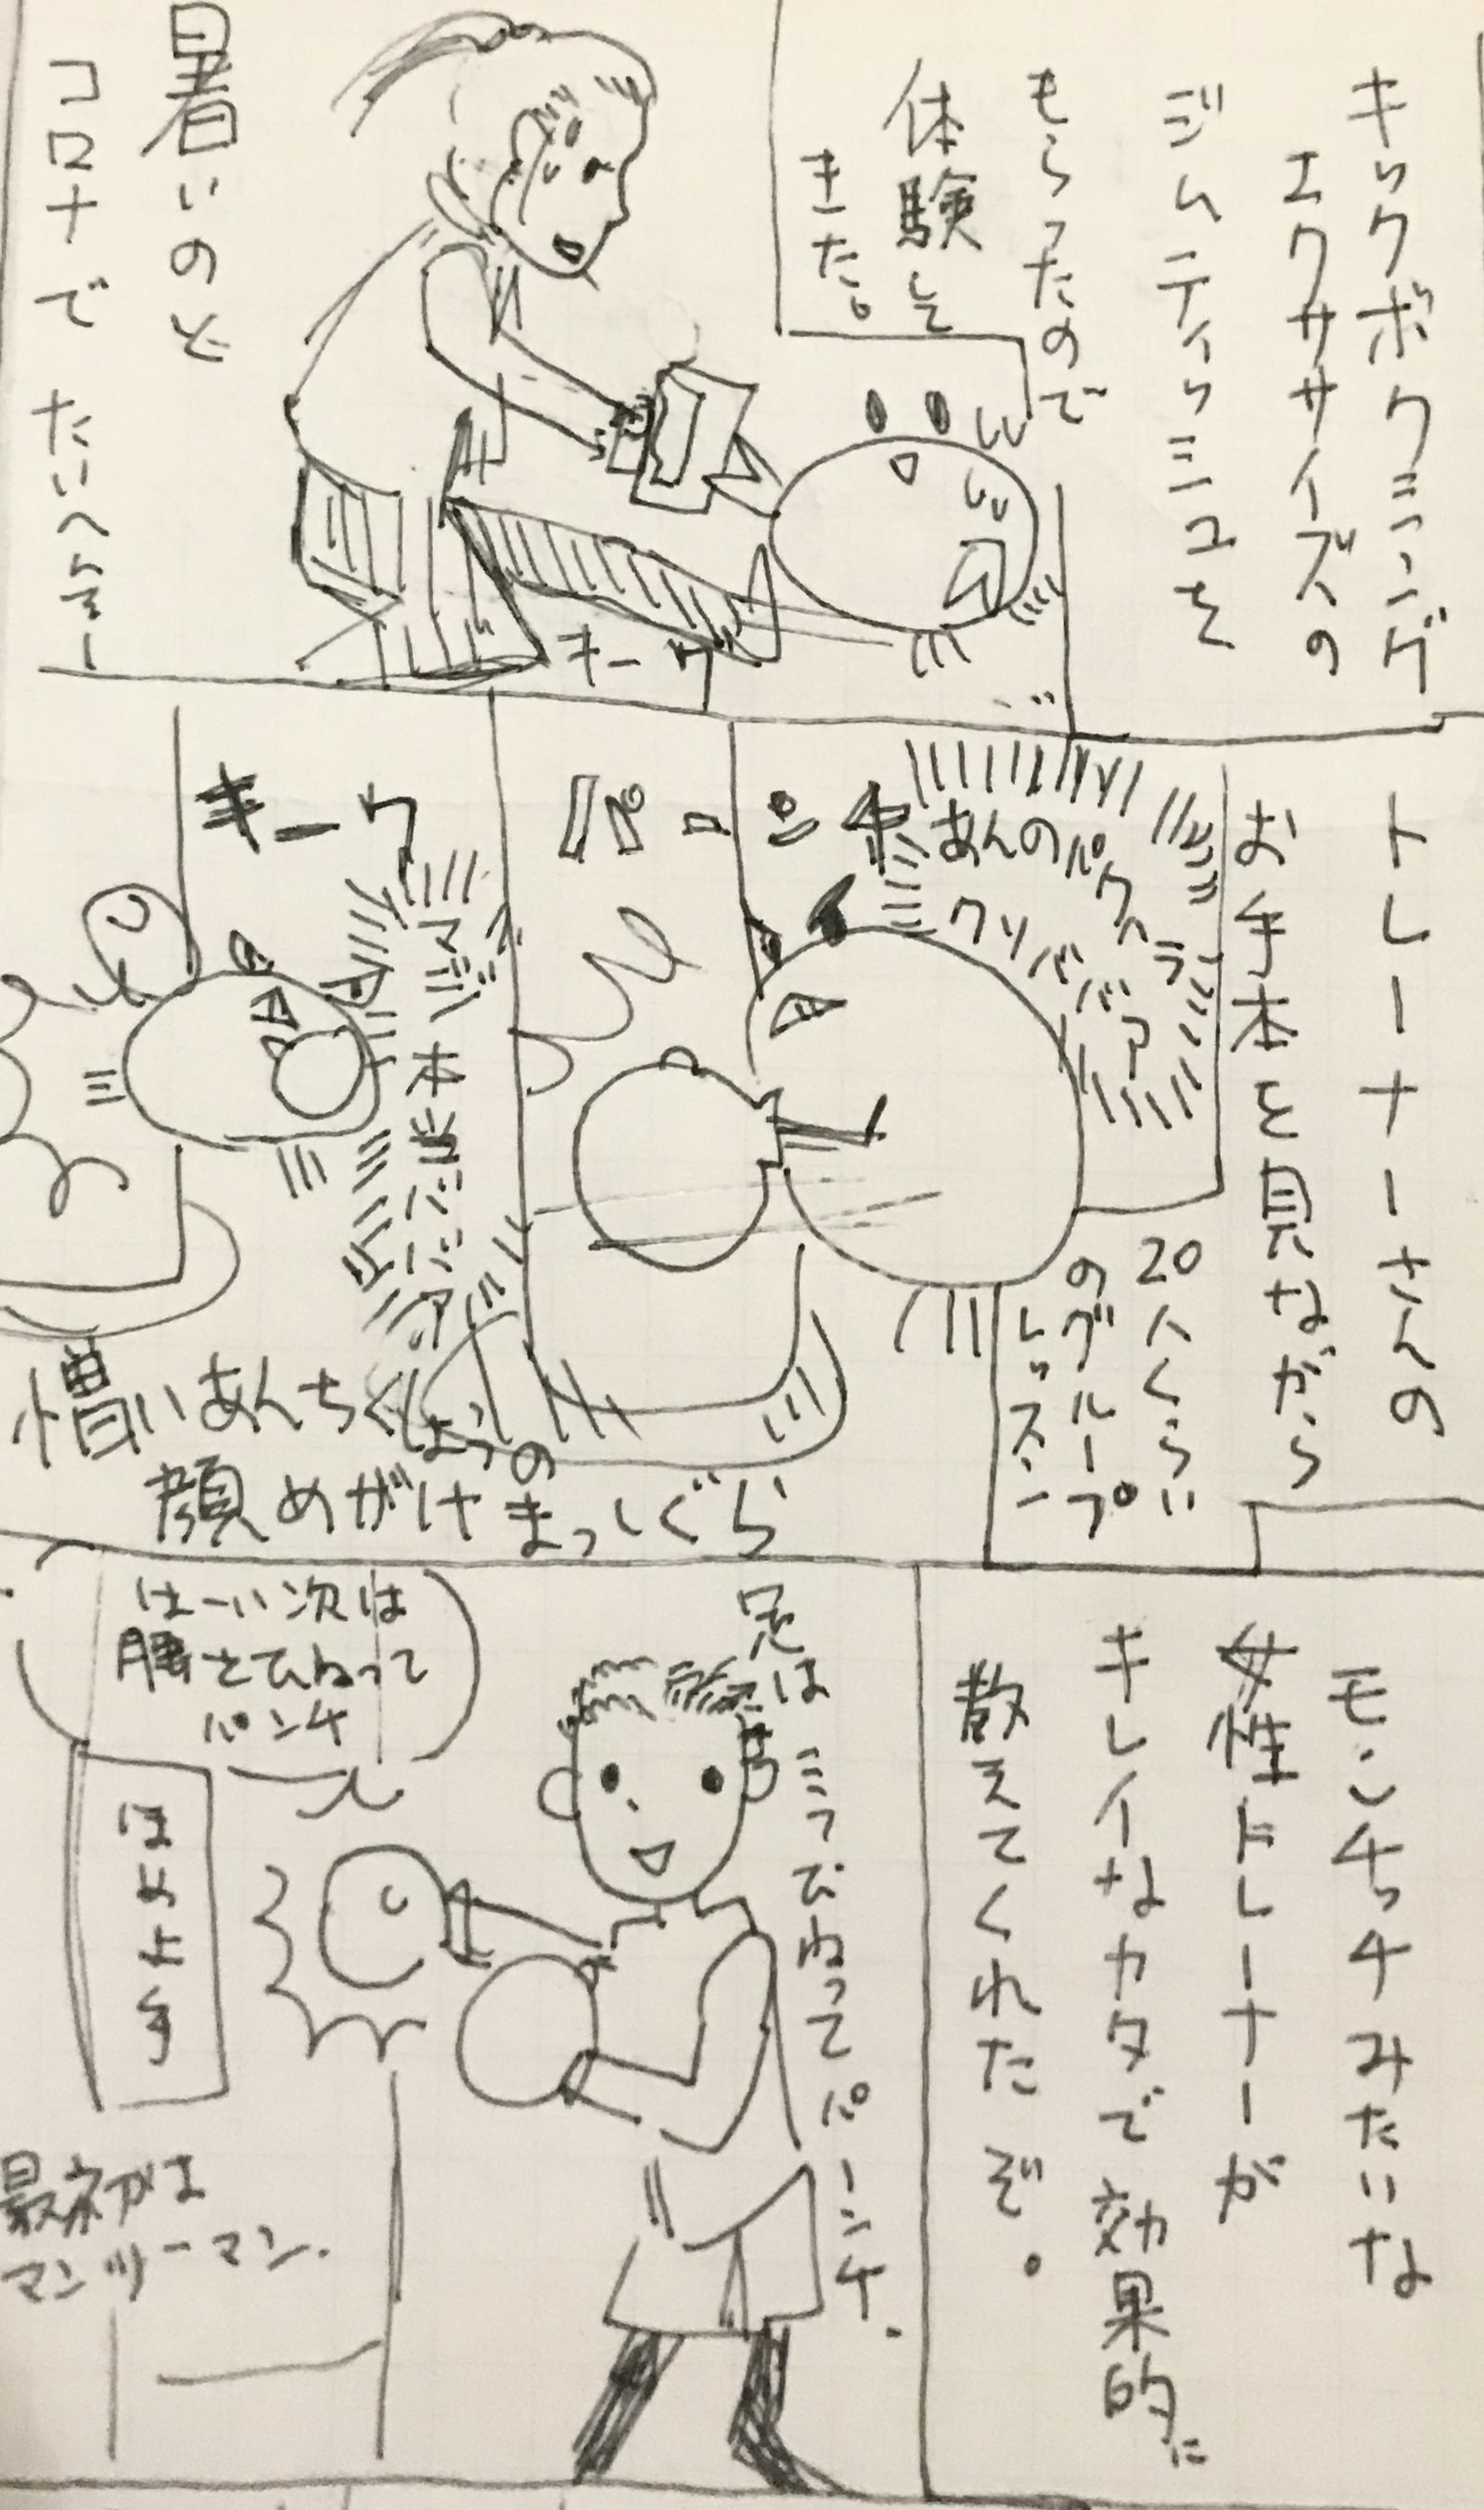 キックボクシング
エクササイズの
ジムティッシュを
もらったので
体験して
きた。
暑いのと
コロナで たいへん！
トレーナーさんの
お手本を見ながら
20人くらい
のグループ
レッスン
パーンチ
あんのパワハラ
クソババアー
キーック
憎いあんちくしょうの
顔めがけまっしぐら
モンチッチみたいな
女性トレーナーが
キレイなカタで効果的に
教えてくれたぞ。
足は
はーい次は
腰をひねって
パンチ
ひねってパーンチ。
最初は
マンツーマン。